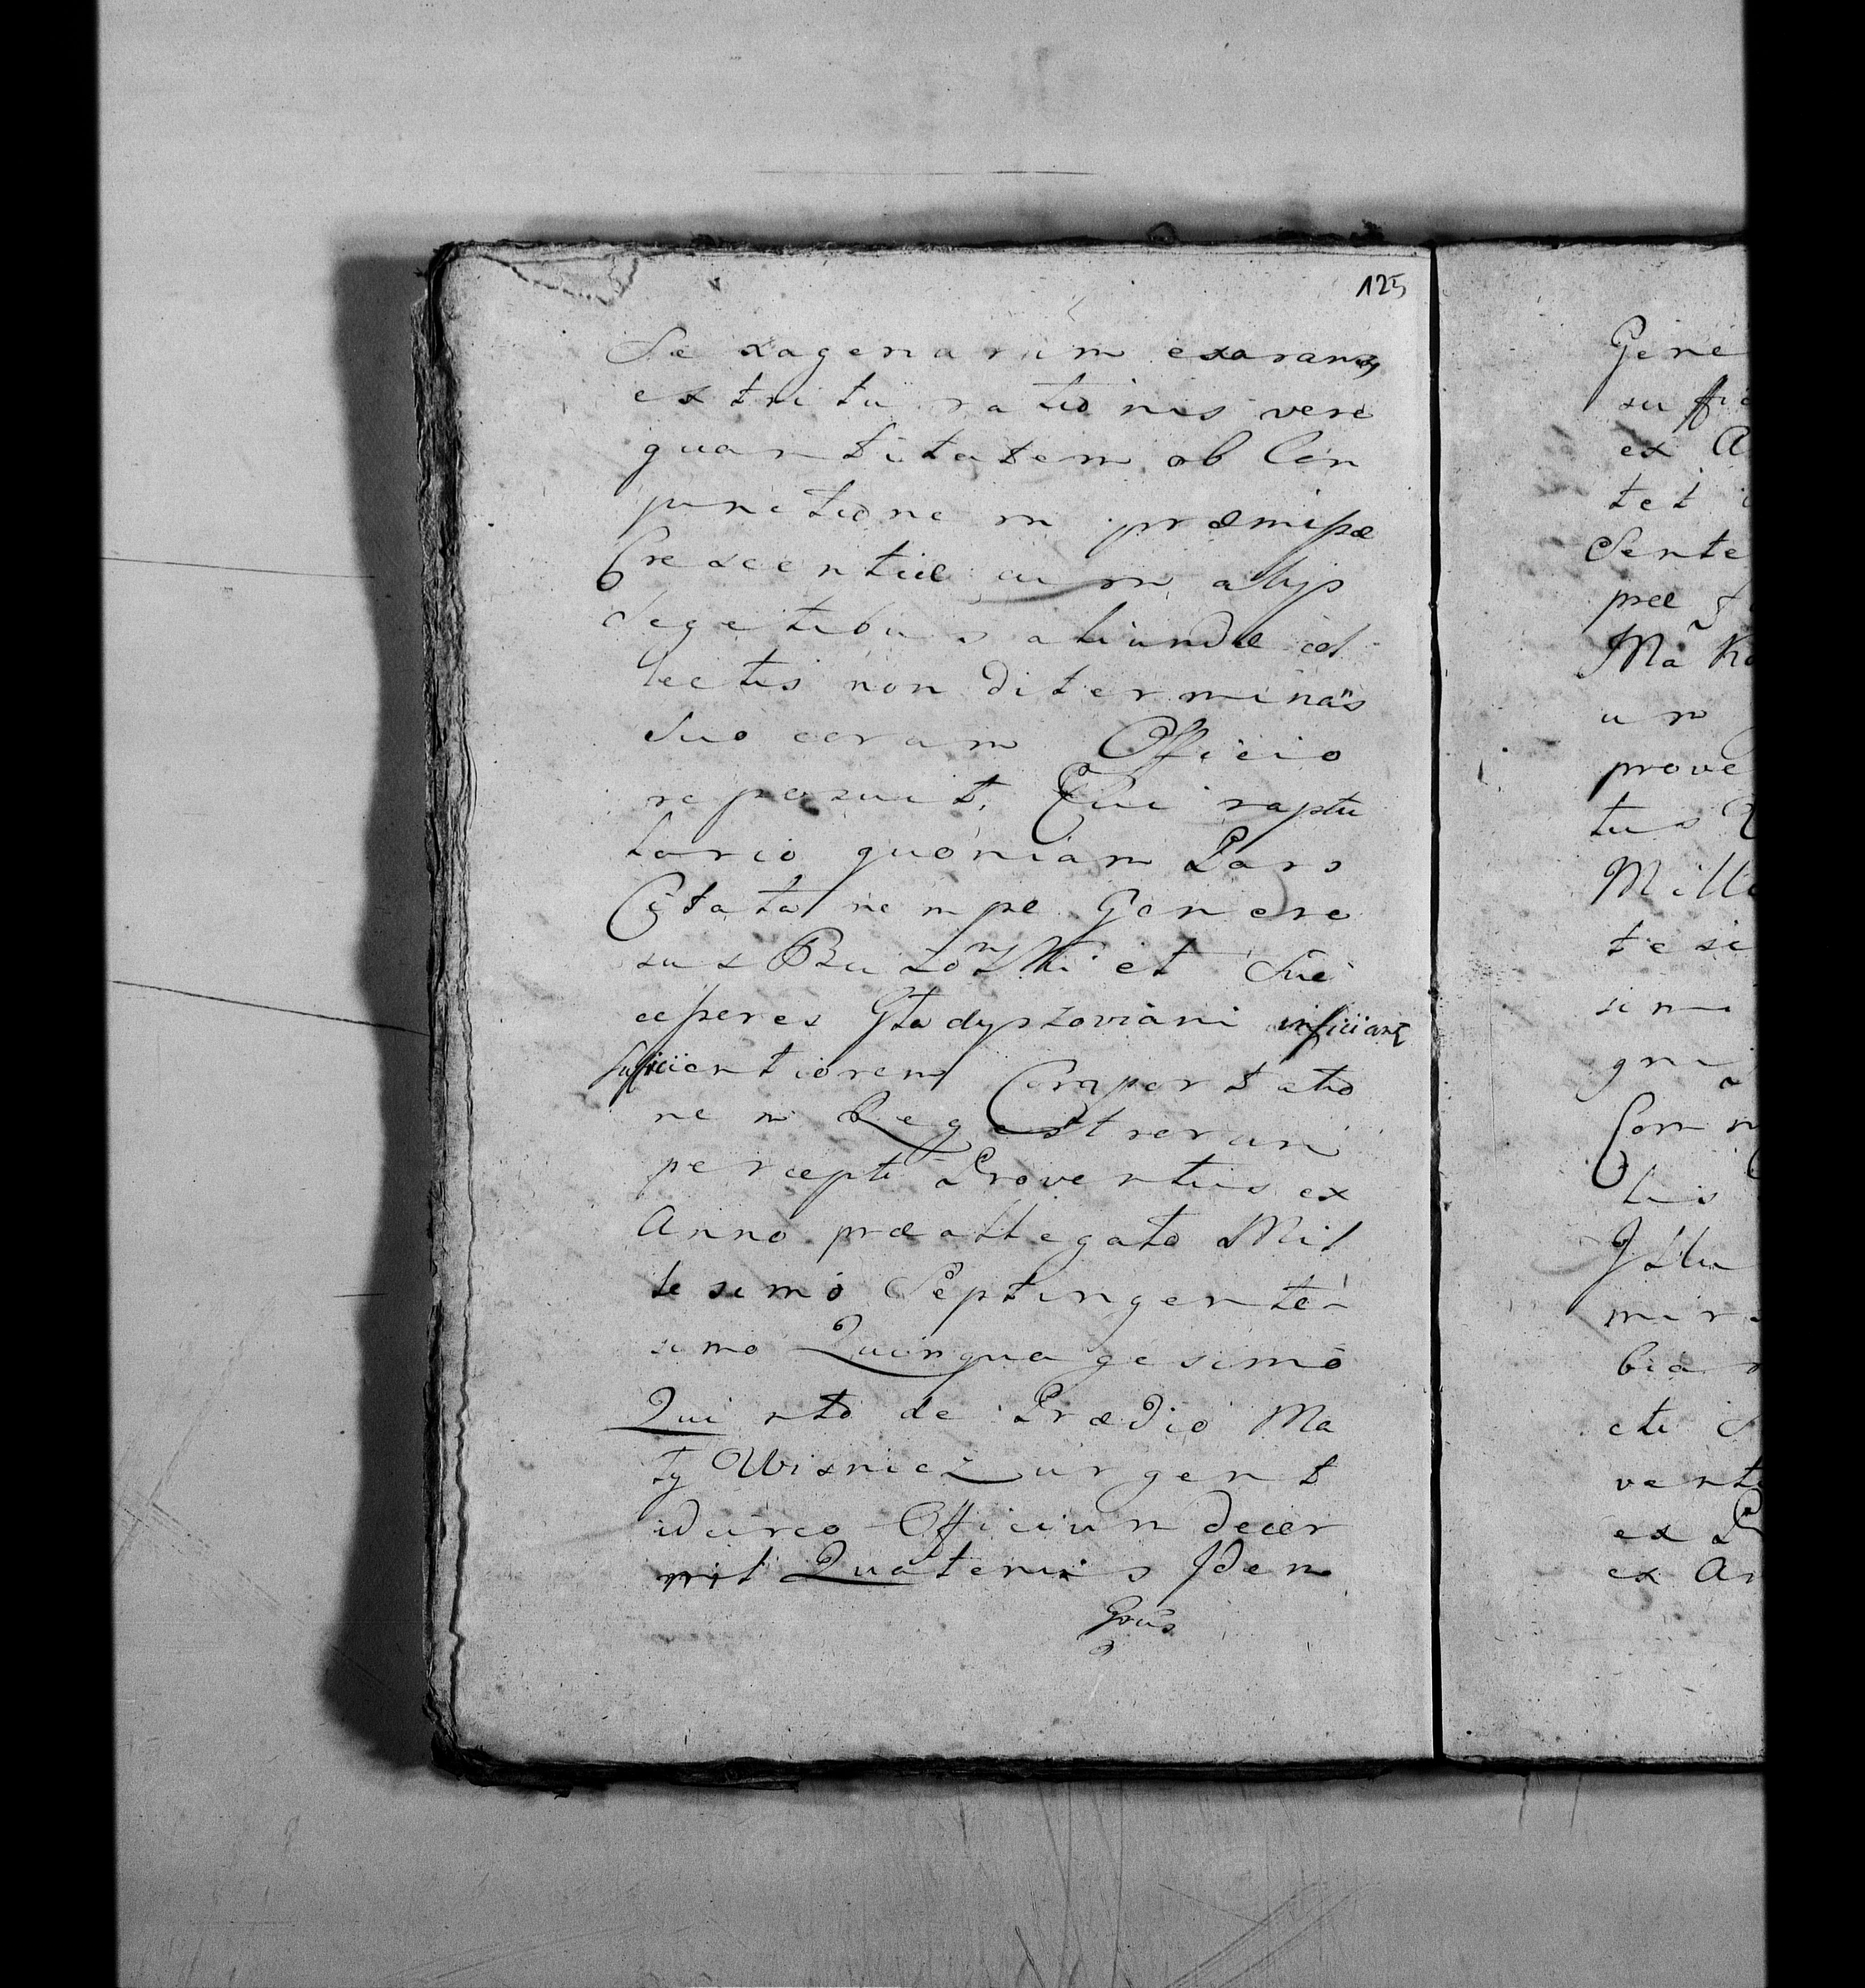 125
Sexagenarum exarans
extrituationis vere
quantitatem ob Con
junctionem præmissæ
Crescentiæ cum alijs
Segetibus aliunde col
lectis non determinãs
Suo coram Officio
reposuit, Cui raptu
lario quoniam Pars
Citata nempe Genero
sus et Suc
cessores Gładyszoviani inficiant
sufficientiorem Comportatio
nem Regestrorum
percepti Proventus ex
Anno præallegato Mil
lesimo Septingente-
simo Quinquagesimo
Quinto de Prædio Ma
ły Wisnicz urgent
idcirco Officium decer
nit Quatenus Idem
Grũs
Gene
suffic
ex A
tet
Sente
præ
Mã Ko
um
prove
tus
Mille
tesi
simi
Com
tus
Illu
mira
bia
cti
vent
ex Pr
ex An